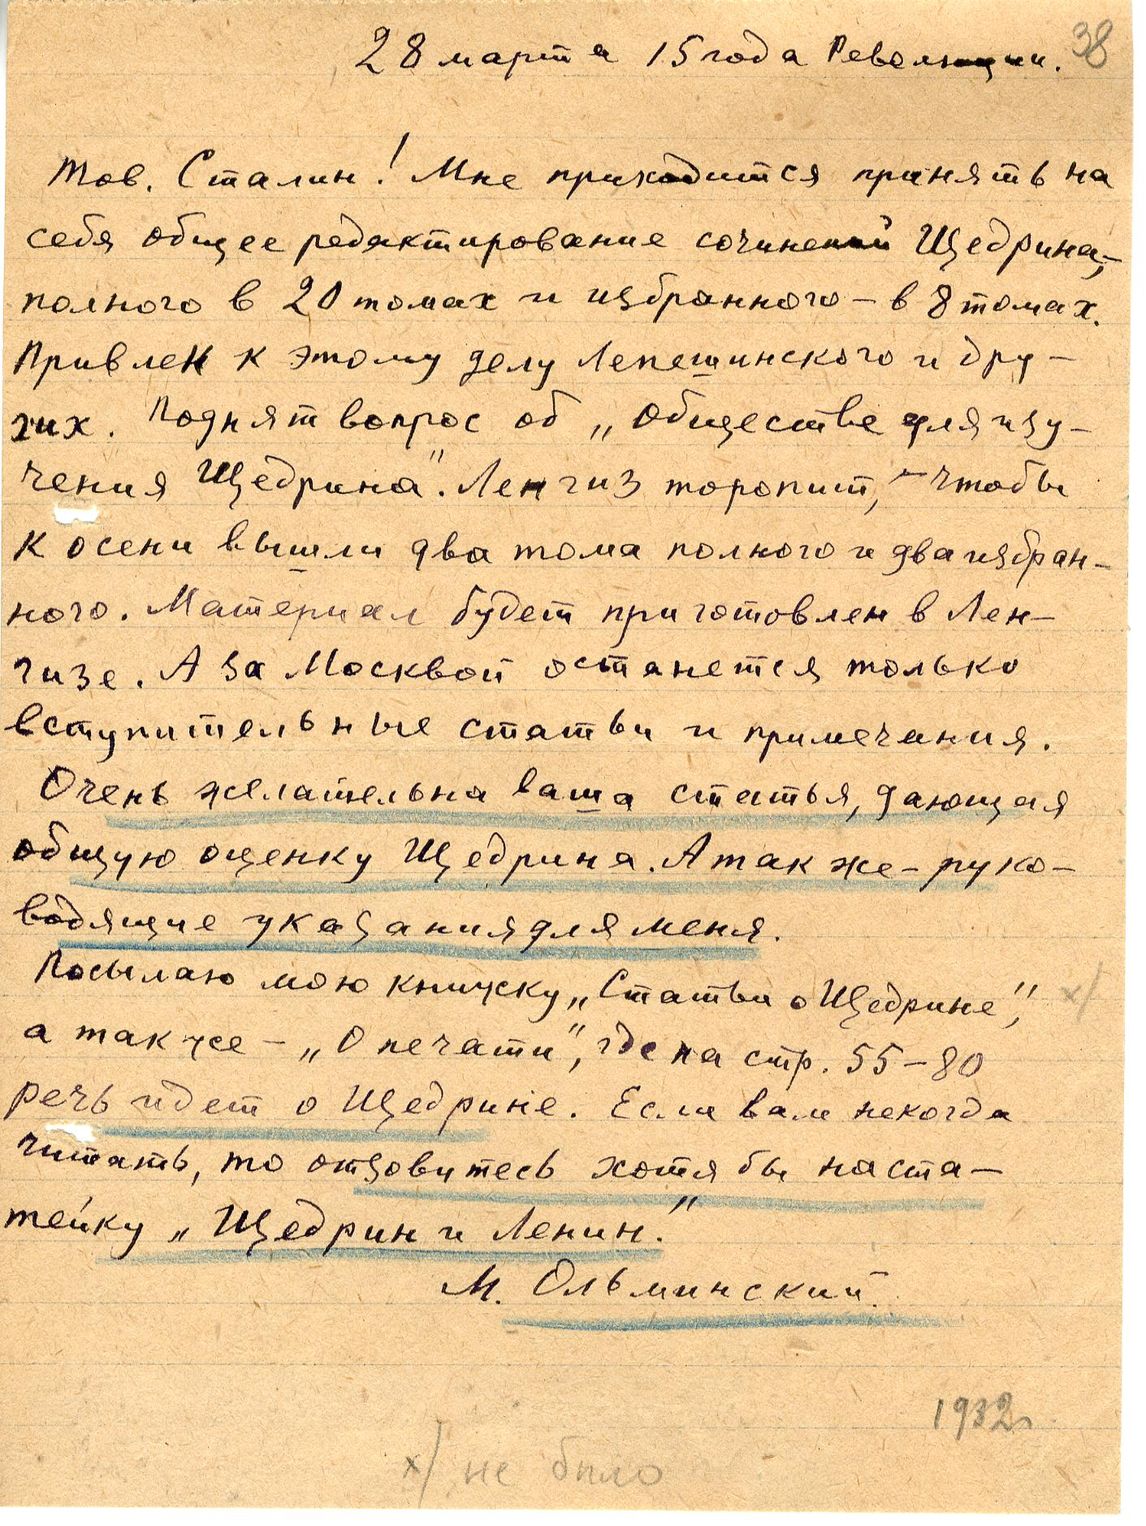 38
28 марта 15 года Революции.
Тов. Сталин! Мне приходится принять на
себя общее редактирование сочинений Щедрина,–
полного в 20 томах и избранного – в 8 томах.
Привлек к этому делу Лепешинского и дру–
гих. Поднят вопрос об „Обществе для изу–
чения Щедрина". Ленгиз торопит, – чтобы
к осени вышли два тома полного и два избран–
ного. Материал будет приготовлен в Лен–
гизе. А за Москвой останется только
вступительные статьи и примечания.
Очень желательна ваша статья, дающая
общую оценку Щедрина. А также – руко–
водящие указания для меня.
Посылаю мою книжку „Статьи о Щедрине", х/
а также – „О печати", где на стр. 55–80
речь идет о Щедрине. Если вам некогда
читать, то отзовитесь хотя бы на ста–
тейку „Щедрин и Ленин."
М. Ольминский.
1932г.
х/ не было